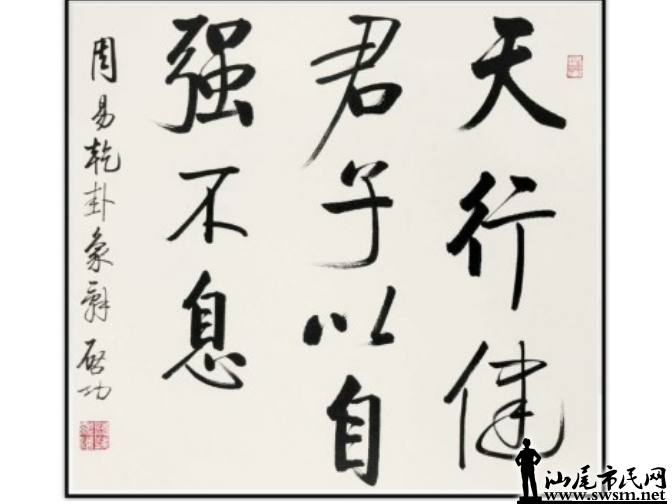 天行健
君子以自
强不息
周易乾卦象辞 启功
汕尾市民网
www.swsm.net